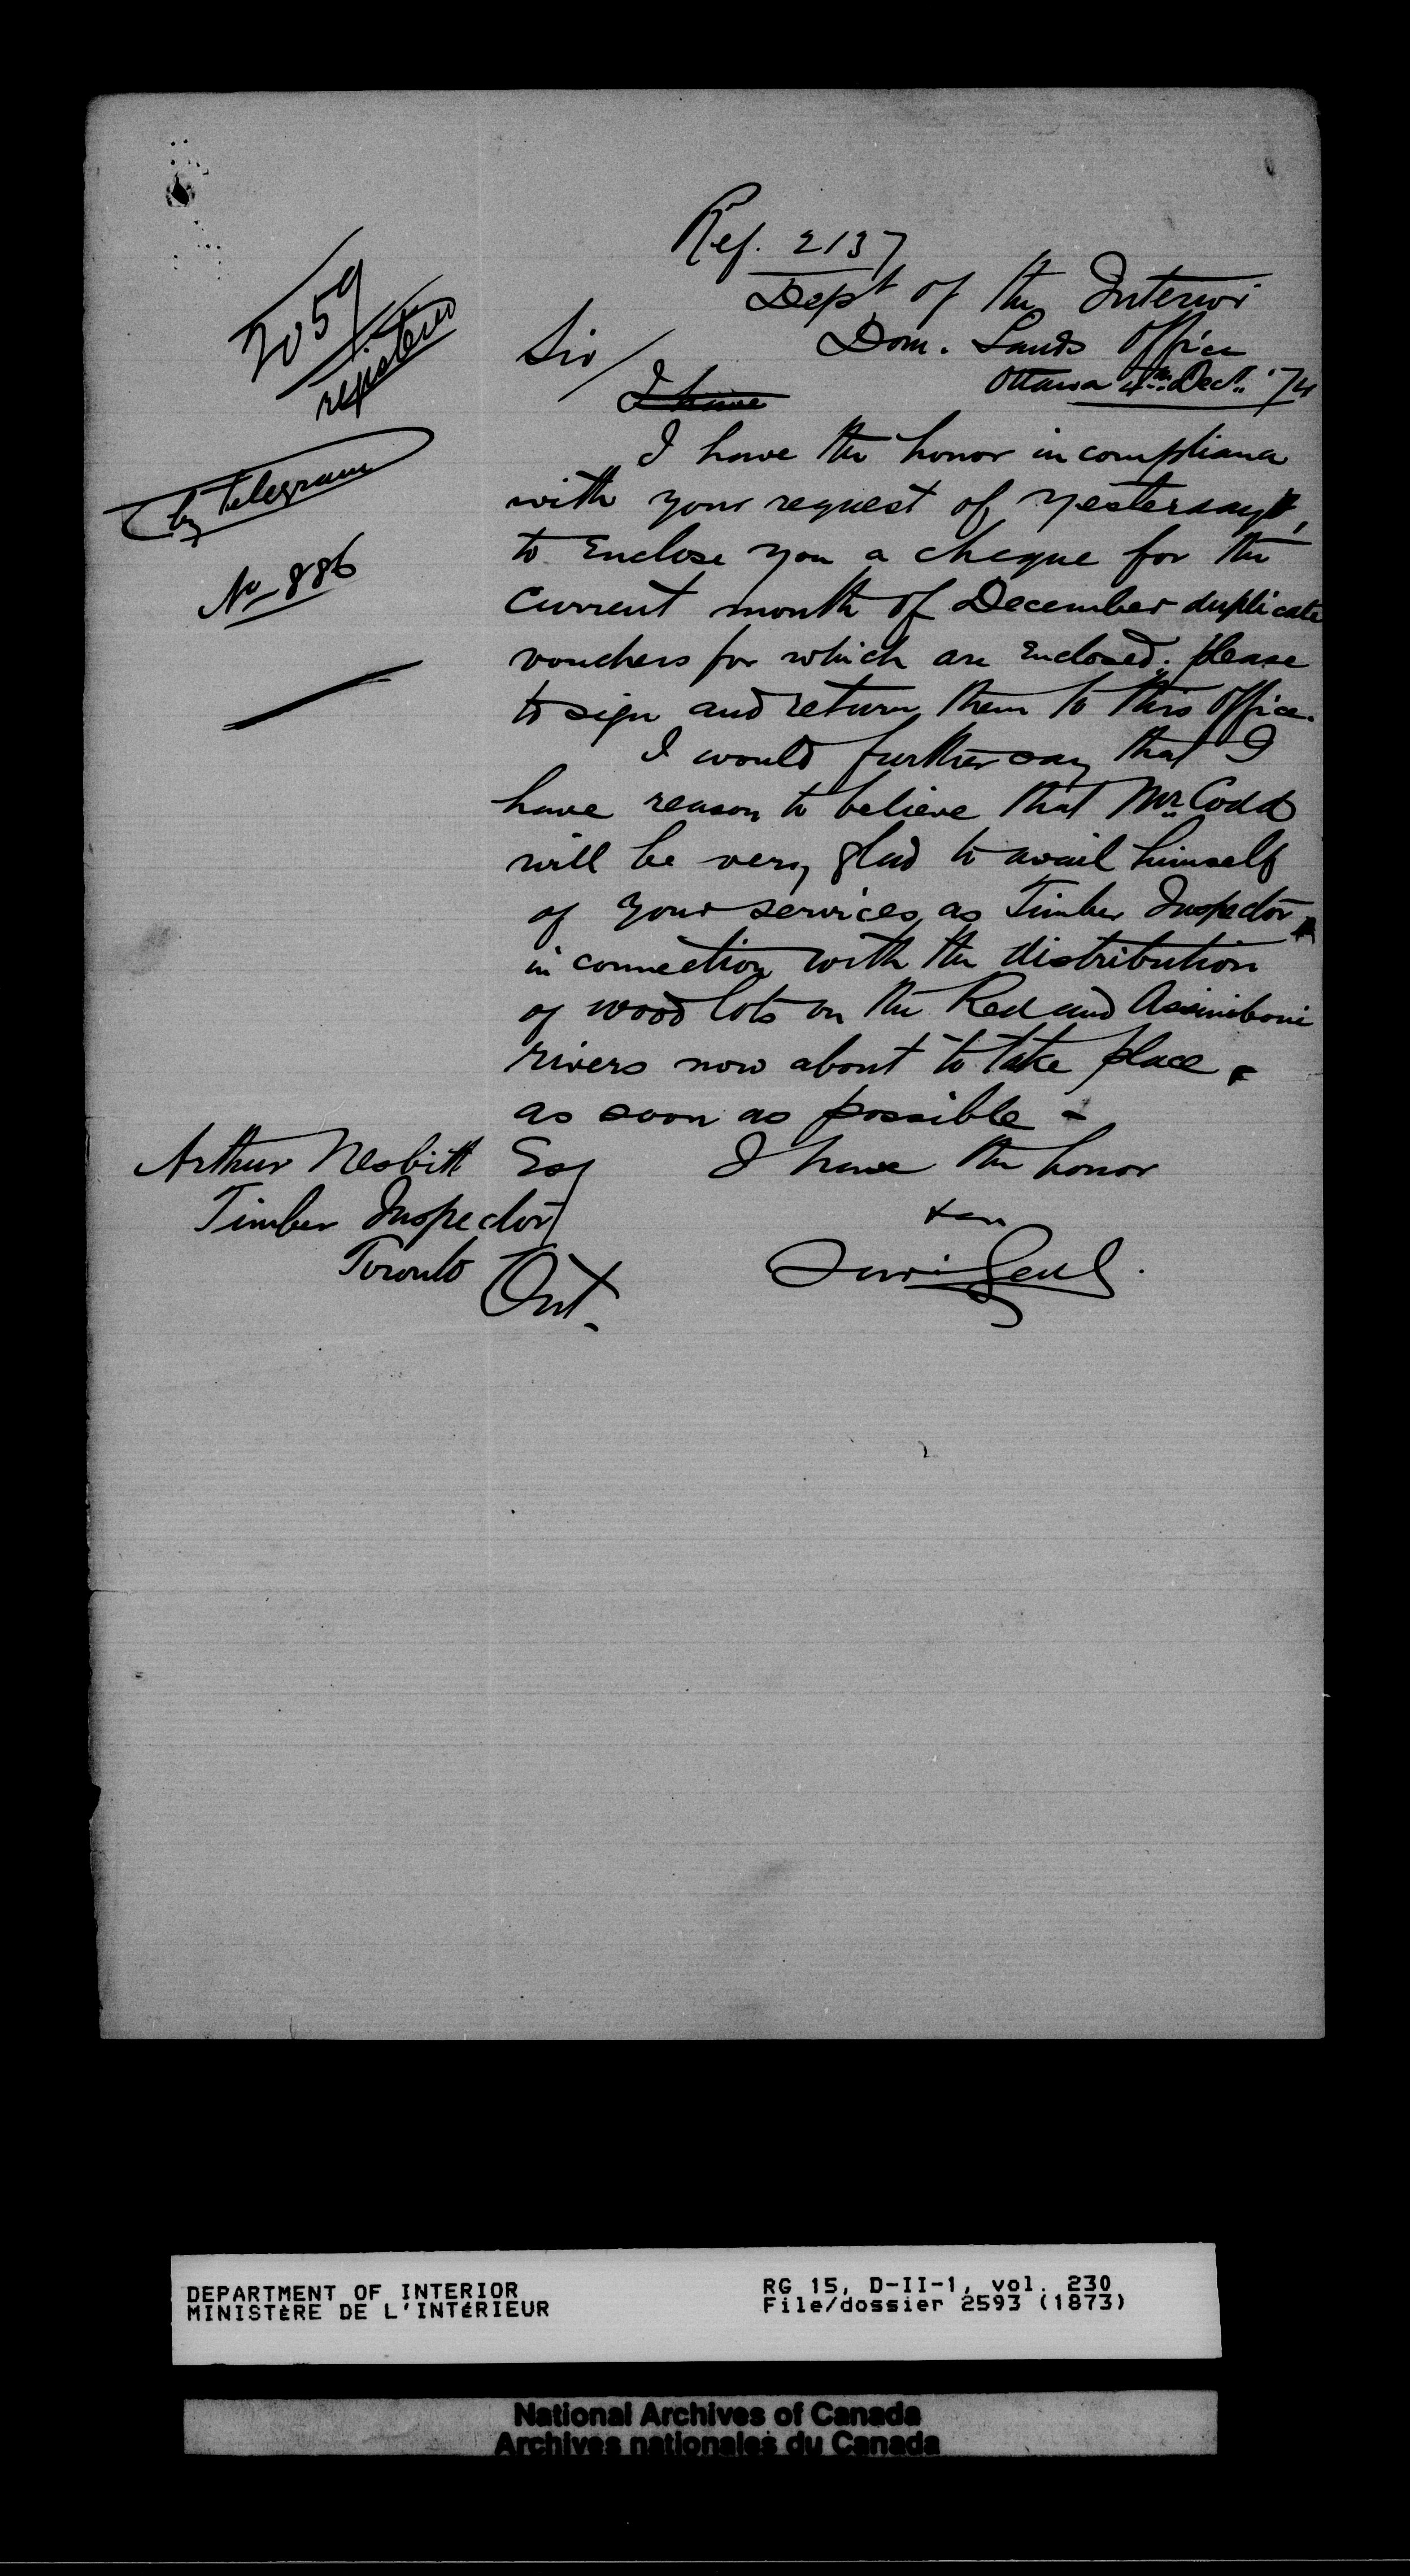 Ref. 2137
Dept of the Interior
Dom. Lands Office
Ottawa 4th Decr. '74
2059
registered
by telegram
No 886
Sir
I have
I have the honor in compliance
with your request of yesterday,
to enclose you a cheque for the
current month of December duplicate
vouchers for which are enclosed. please
to sign and return them to this office.
I would further say that I
have reason to believe that Mr. Codd
will be very glad to avail himself
of your services as Timber Inspector
in connection with the distribution
of wood lots on the Red and Assiniboine
rivers now about to take place,
as soon as possible -
I have the honor
Arthur Nesbitt Esq
Timber Inspector
Toronto Ont.
Survr Genl.
DEPARTMENT OF INTERIOR
MINISTèRE DE L'INTéRIEUR
RG 15, D-II-1, vol. 230
File/dossier 2593 (1873)
National Archives of Canada
Archives nationales du Canada